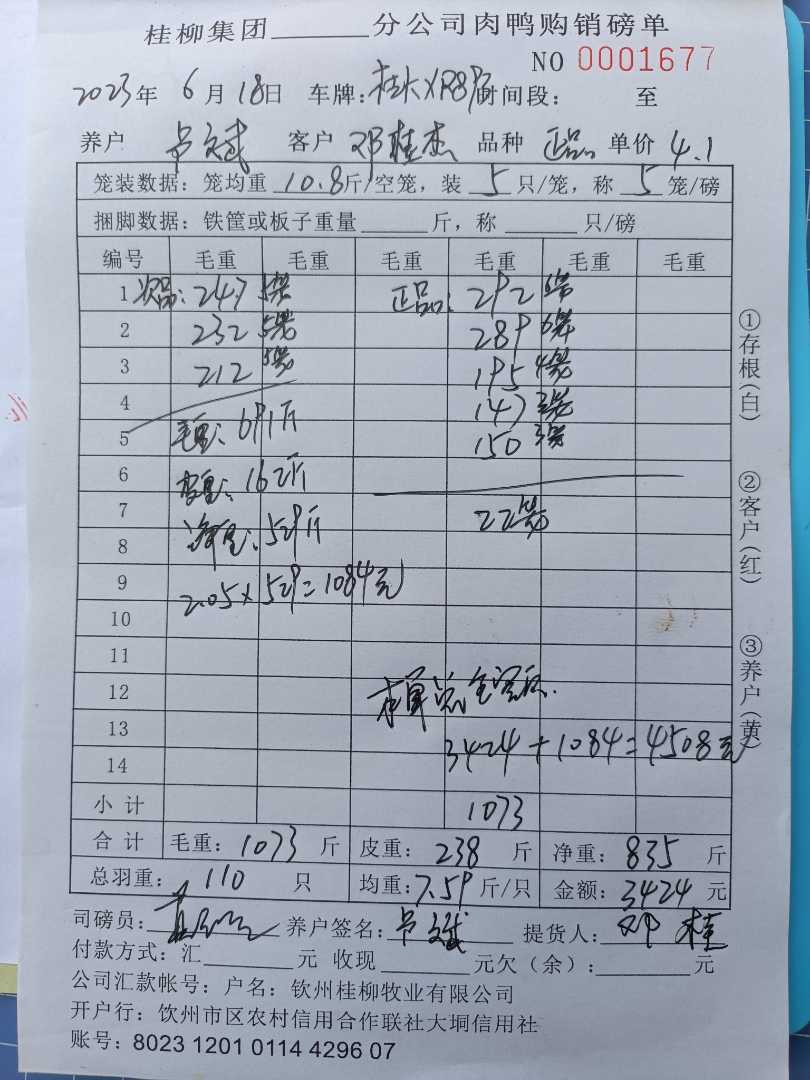 桂柳集团______分公司肉鸭购销磅单
NO 0001677
2023年 6月18日 车牌: 时间段: 至
养户 客户 邓桂杰 品种 正品 单价 4.1
笼装数据：笼均重 10.8斤/空笼，装 5 只/笼，称 5 笼/磅
捆脚数据：铁筐或板子重量______斤，称______只/磅
编号 毛重 毛重 毛重 毛重 毛重 毛重
1 次品：247 5笼 正品：292 6笼
2 232 5笼 289 6笼
3 212 5笼 195 4笼
4 147 3笼
5 毛重：691斤 150 3笼
6 皮重：162斤
7 22笼
8 净重：529斤
9 2.05×529=1084元
10
11
12 本单总金额
13 3424+1084=4508元
14
小计 1073
合计 毛重：1073斤 皮重：238斤 净重：835斤
总羽重：110只 均重：7.59斤/只 金额：3424元
司磅员： 养户签名： 提货人：邓桂
付款方式：汇______元 收现______元欠（余）：______元
公司汇款帐号：户名：钦州桂柳牧业有限公司
开户行：钦州市区农村信用合作联社大垌信用社
账号：8023 1201 0114 4296 07
①存根（白）
②客户（红）
③养户（黄）